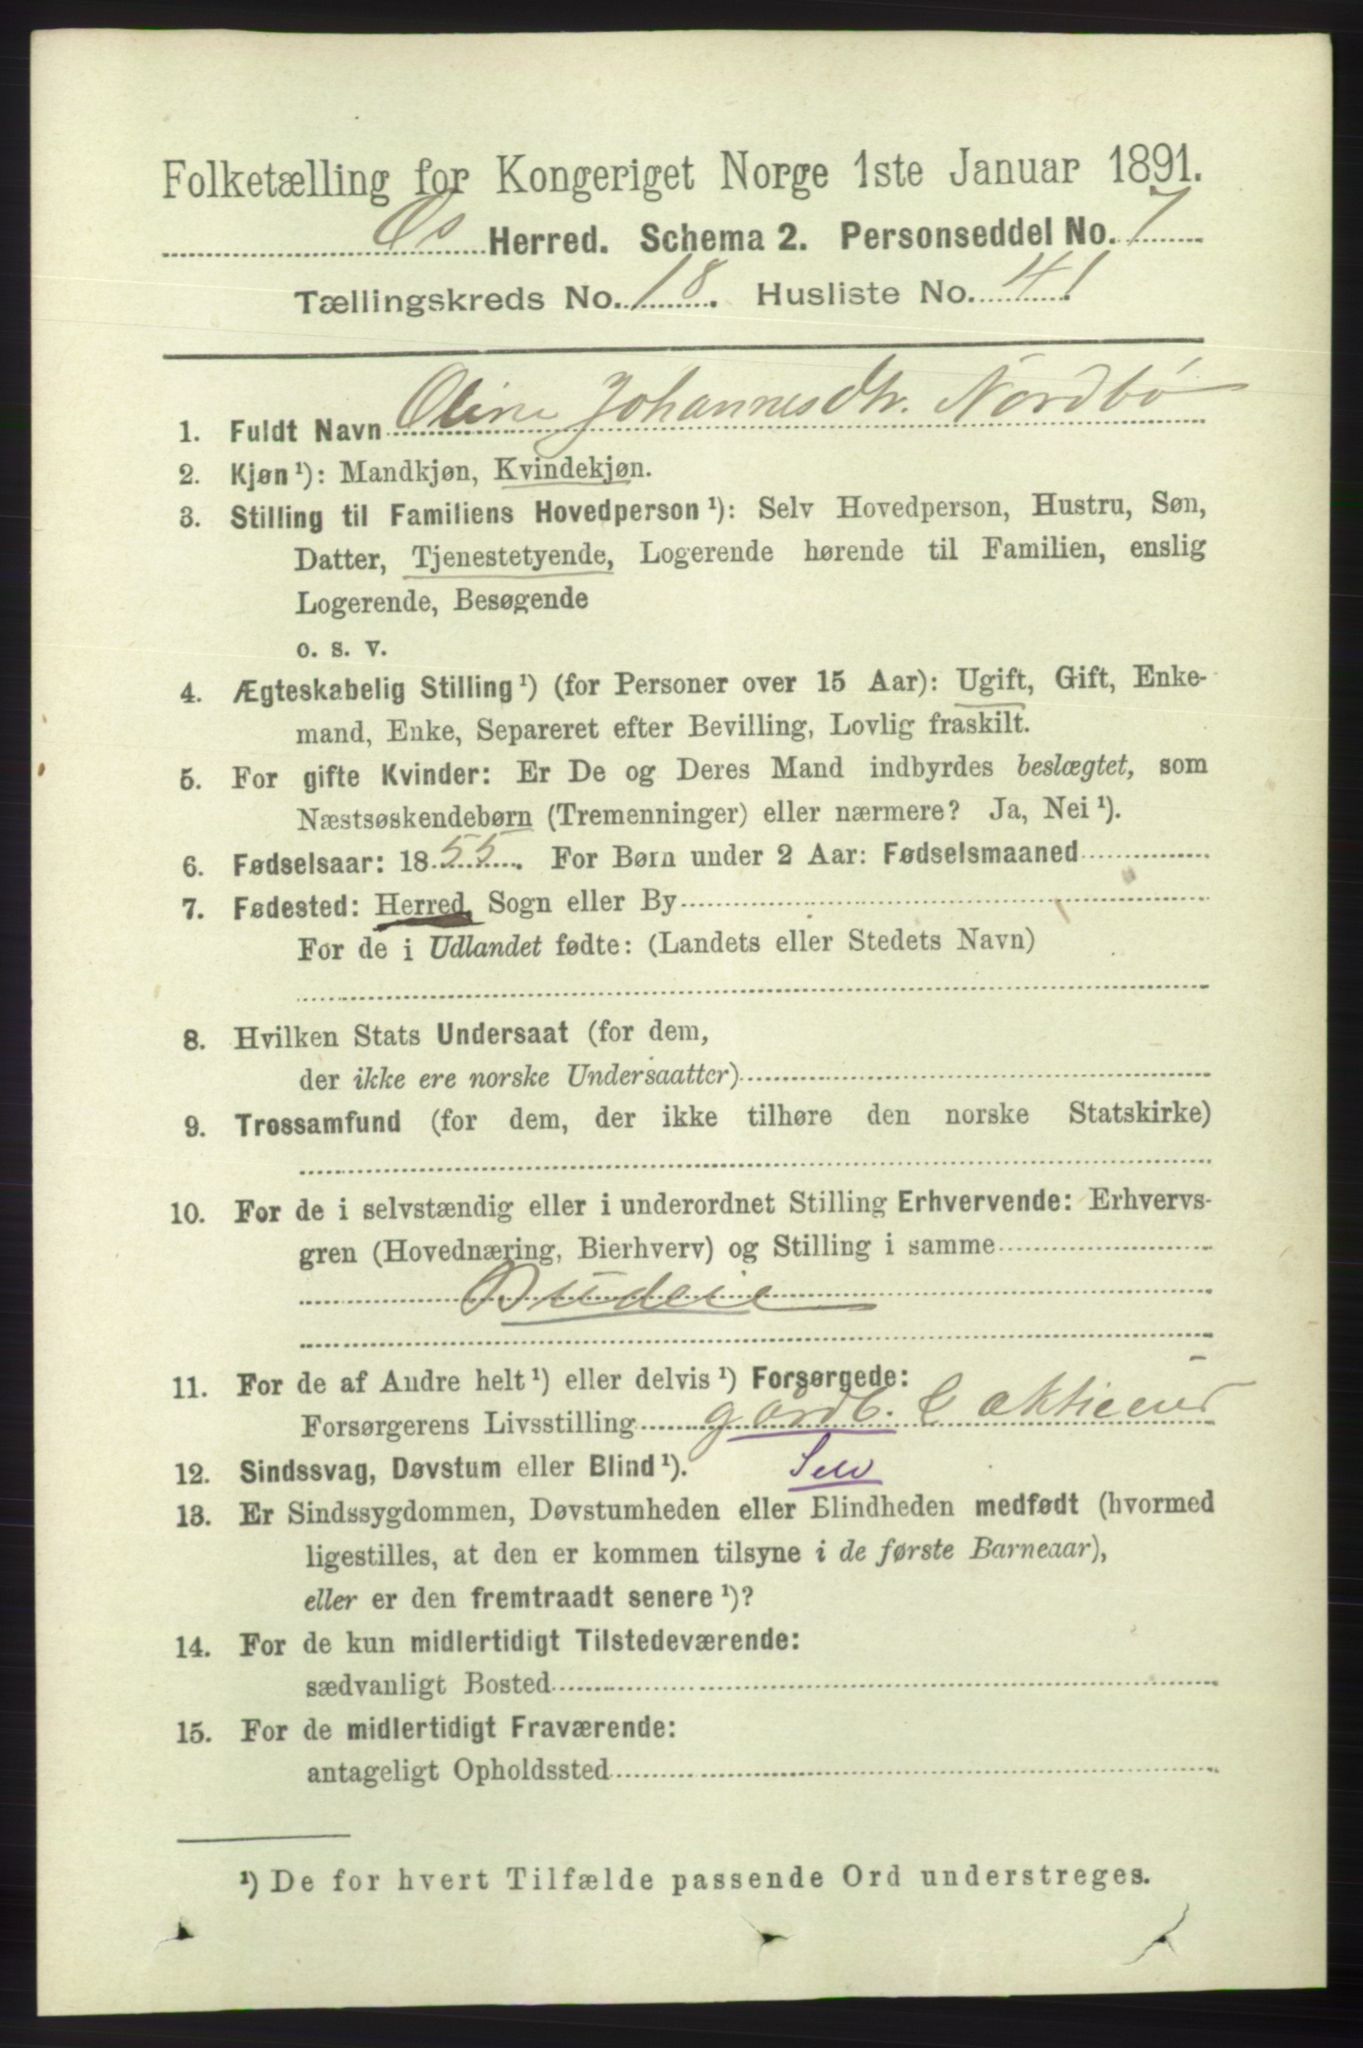 Folketælling for Kongeriget Norge 1ste Januar 1891.
Os Herred. Schema 2. Personseddel No. 7
Tællingskreds No. 18. Husliste No. 41
1. Fuldt Navn Oline Johannesdtr. Nordbø
2. Kjøn¹): Mandkjøn, Kvindekjøn.
3. Stilling til Familiens Hovedperson¹): Selv Hovedperson, Hustru, Søn,
Datter, Tjenestetyende, Logerende hørende til Familien, enslig
Logerende, Besøgende
o. s. v.
4. Ægteskabelig Stilling¹) (for Personer over 15 Aar): Ugift, Gift, Enke-
mand, Enke, Separeret efter Bevilling, Lovlig fraskilt.
5. For gifte Kvinder: Er De og Deres Mand indbyrdes beslægtet, som
Næstsøskendebørn (Tremenninger) eller nærmere? Ja, Nei¹).
6. Fødselsaar: 1855. For Børn under 2 Aar: Fødselsmaaned
7. Fødested: Herred, Sogn eller By
For de i Udlandet fødte: (Landets eller Stedets Navn)
8. Hvilken Stats Undersaat (for dem,
der ikke ere norske Undersaatter)
9. Trossamfund (for dem, der ikke tilhøre den norske Statskirke)
10. For de i selvstændig eller i underordnet Stilling Erhvervende: Erhvervs-
gren (Hovednæring, Bierhverv) og Stilling i samme
Budeie
11. For de af Andre helt¹) eller delvis¹) Forsørgede:
Forsørgerens Livsstilling gårdb.
12. Sindssvag, Døvstum eller Blind¹). Selv
13. Er Sindssygdommen, Døvstumheden eller Blindheden medfødt (hvormed
ligestilles, at den er kommen tilsyne i de første Barneaar),
eller er den fremtraadt senere¹)?
14. For de kun midlertidigt Tilstedeværende:
sædvanligt Bosted
15. For de midlertidigt Fraværende:
antageligt Opholdssted
¹) De for hvert Tilfælde passende Ord understreges.